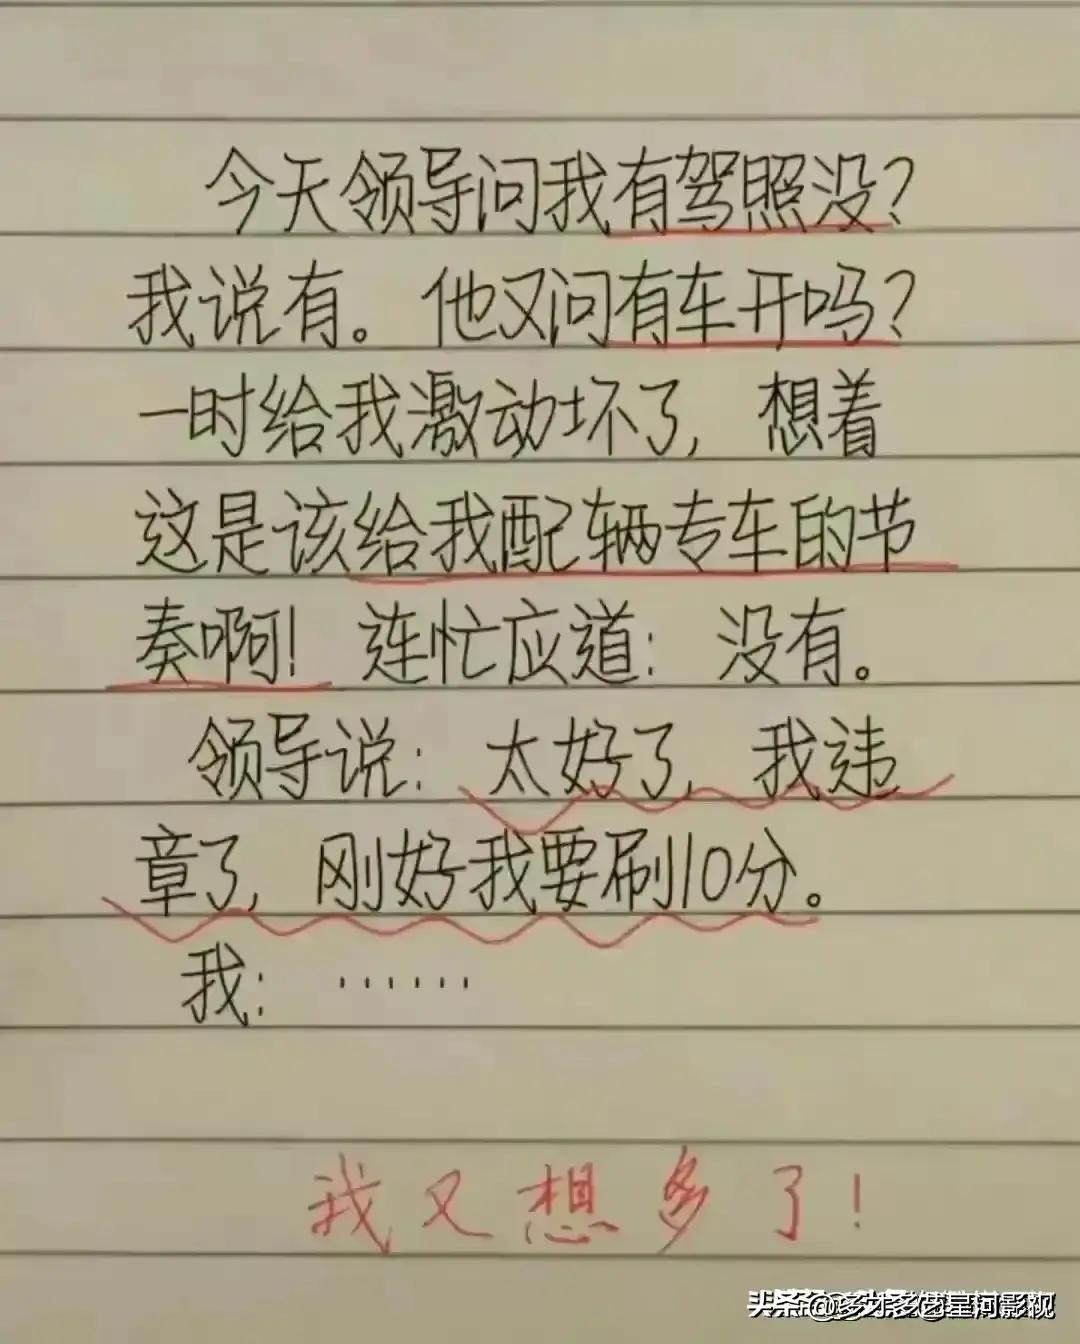 今天领导问我有驾照没？
我说有。他又问有车开吗？
一时给我激动坏了，想着
这是该给我配辆专车的节
奏啊！连忙应道：没有。
领导说：太好了，我违
章了，刚好我要刷10分。
我：……
我又想多了！
头条@多才多艺星河影视